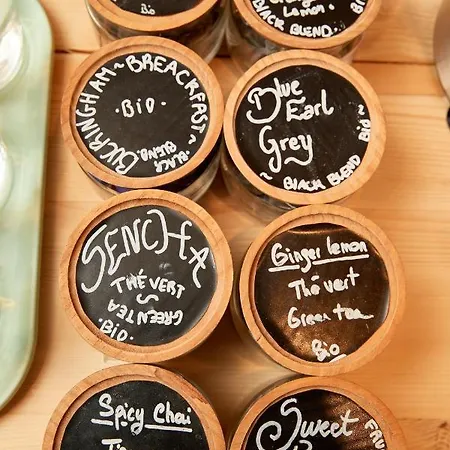 Bio
Lemon
BLACK BLEND.
BUCKINGHAM ~ BREACKFAST ~
• BIO •
• BLACK BLEND •
Blue
Earl
Grey
~ BLACK BLEND BIO ~
SENCHA
THÉ VERT
~
GREEN TEA
• BIO •
Ginger lemon
Thé vert
Green tea
Bio
Spicy Chai
Sweet